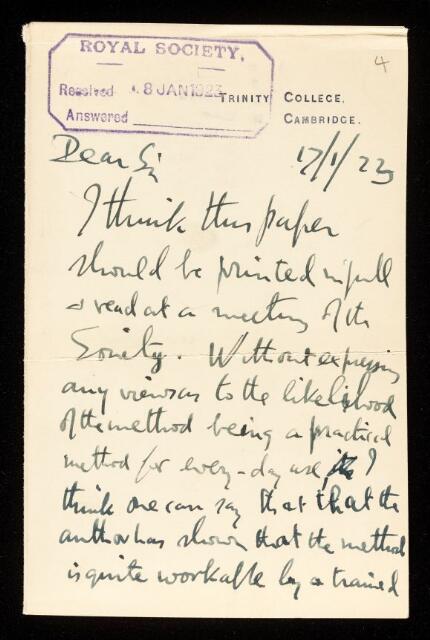 4
ROYAL SOCIETY.
Received 18 JAN 1923
Answered
TRINITY COLLEGE,
CAMBRIDGE.
Dear Sir
17/1/23
I think this paper
should be printed in full
& read at a meeting of the
Society. Without expressing
any views as to the likelihood
of the method being a practical
method for every-day use, I
think one can say that that the
author has shown that the method
is quite workable by a trained